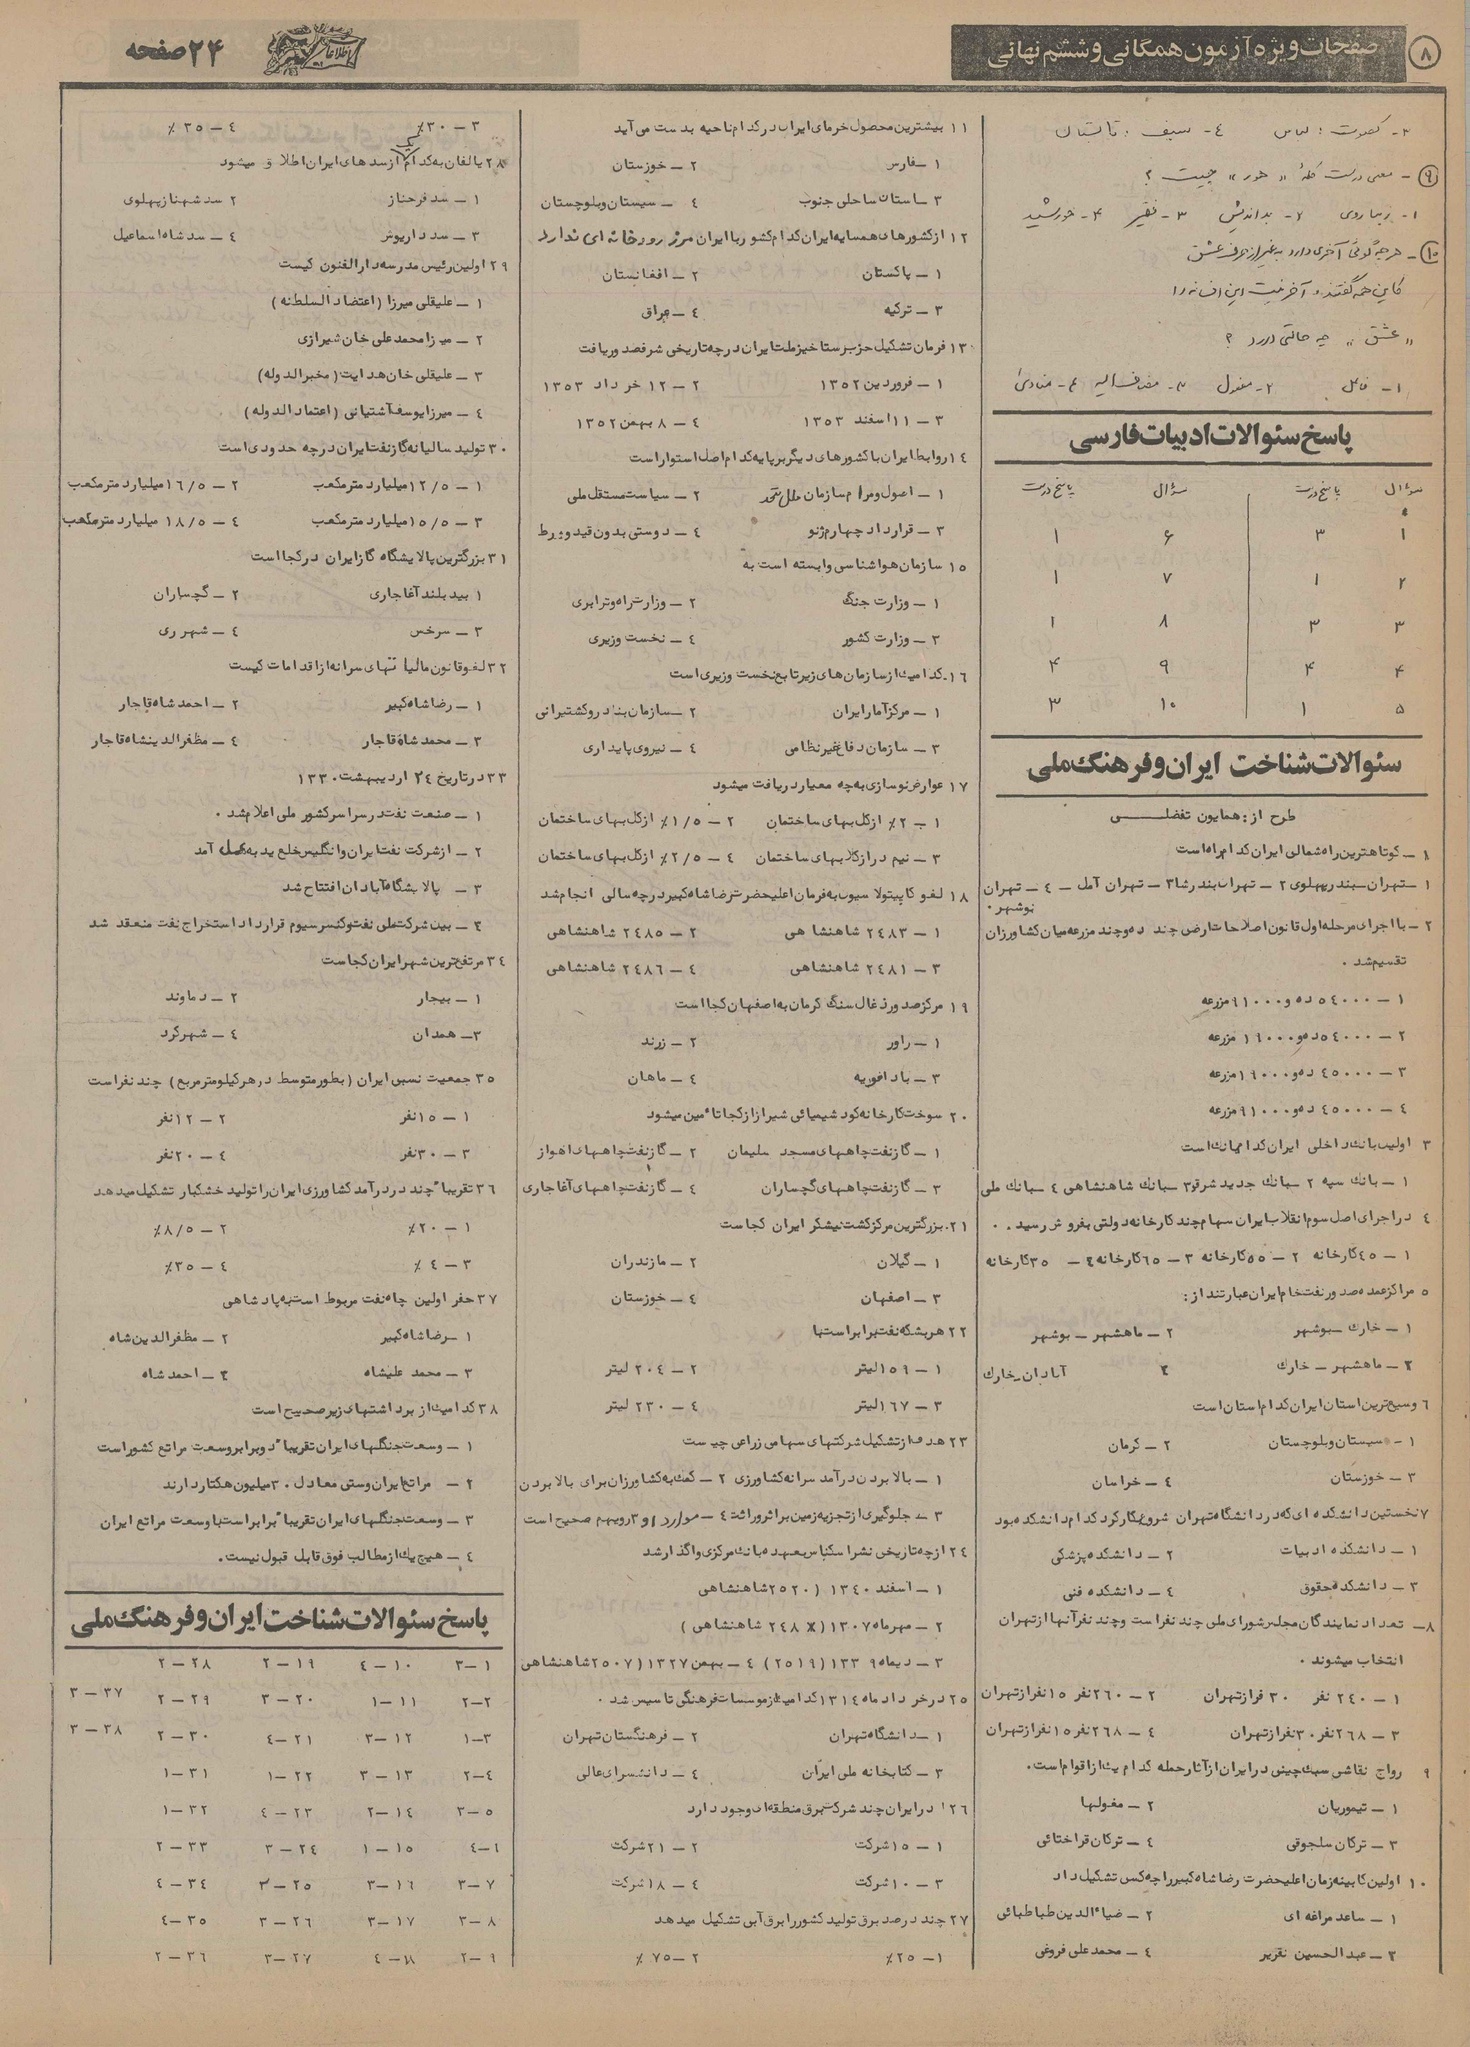 ۸
صفحات ویژه آزمون همگانی و ششم نهائی
اطلاعات
۲۴ صفحه
۳- کسوت : لباس ۴- سیف : تابستان
۹- معنی درست کلمهٔ «هور» چیست ؟
۱- زیبا روی ۲- بداندیش ۳- فقیر ۴- خورشید
۱۰- هرچه گوئی آخری دارد به غیر از حرف عشق
کاین همه گفتند و آخر نیست این افسانه را
«عشق» چه حالتی دارد ؟
۱- فاعل ۲- مفعول ۳- مضاف الیه ۴- منادی
پاسخ سئوالات ادبیات فارسی
سؤال پاسخ درست سؤال پاسخ درست
۱ ۳ ۶ ۱
۲ ۱ ۷ ۱
۳ ۳ ۸ ۱
۴ ۴ ۹ ۴
۵ ۱ ۱۰ ۳
سئوالات شناخت ایران و فرهنگ ملی
طرح از : همایون تفضلی
۱ – کوتاهترین راه شمالی ایران کدام راه است
۱ – تهران – بندر پهلوی ۲ – تهران بندر شا ۳ – تهران آمل – ٤ – تهران
نوشهر .
۲ – با اجرای مرحله اول قانون اصلاحات ارضی چند ده و چند مزرعه میان کشاورزان
تقسیم شد .
۱ – ۵٤۰۰۰ ده و ۹۱۰۰۰ مزرعه
۲ – ۵٤۰۰۰ ده و ۱۹۰۰۰ مزرعه
۳ – ٤۵۰۰۰ ده و ۱۹۰۰۰ مزرعه
٤ – ٤۵۰۰۰ ده و ۹۱۰۰۰ مزرعه
۳ اولین بانک داخلی ایران کدام بانک است
۱ – بانک سپه ۲ – بانک جدید شرق ۳ – بانک شاهنشاهی ٤ – بانک ملی
٤ در اجرای اصل سوم انقلاب ایران سهام چند کارخانه دولتی بفروش رسید . .
۱ – ٤۵ کارخانه ۲ – ۵۵ کارخانه ۳ – ٦۵ کارخانه ٤ – ۳۵ کارخانه
۵ مراکز عمده صدور نفت خام ایران عبارتند از :
۱ – خارک – بوشهر ۲ – ماهشهر – بوشهر
۳ – ماهشهر – خارک ٤ آبادان – خارک
٦ وسیع ترین استان ایران کدام استان است
۱ – سیستان و بلوچستان ۲ – کرمان
۳ – خوزستان ٤ – خراسان
۷ نخستین دانشکده ای که در دانشگاه تهران شروع بکار کرد کدام دانشکده بود
۱ – دانشکده ادبیات ۲ – دانشکده پزشکی
۳ – دانشکده حقوق ٤ – دانشکده فنی
۸ – تعداد نمایندگان مجلس شورای ملی چند نفر است و چند نفر آنها از تهران
انتخاب میشوند .
۱ – ۲٤۰ نفر ۳۰ فر از تهران ۲ – ۲٦۰ نفر ۱۵ نفر از تهران
۳ – ۲٦۸ نفر ۳۰ نفر از تهران ٤ – ۲٦۸ نفر ۱۵ نفر از تهران
۹ رواج نقاشی سبک چینی در ایران از آثار حمله کدام یک از اقوام است .
۱ – تیموریان ۲ – مغولها
۳ – ترکان سلجوقی ٤ – ترکان قراختائی
۱۰ اولین کابینه زمان اعلیحضرت رضا شاه کبیر را چه کس تشکیل داد
۱ – ساعد مراغه ای ۲ – ضیاءالدین طباطبائی
۳ – عبدالحسین ٤ – محمد علی فروغی
۱۱ بیشترین محصول خرمای ایران در کدام ناحیه بدست می آید
۱ – فارس ۲ – خوزستان
۳ – استان ساحلی جنوب ٤ – سیستان و بلوچستان
۱۲ از کشورهای همسایه ایران کدام کشور با ایران مرز رودخانه ای ندارد
۱ – پاکستان ۲ – افغانستان
۳ – ترکیه ٤ – عراق
۱۳ فرمان تشکیل حزب رستاخیز ملت ایران در چه تاریخی شرفصدور یافت
۱ – فروردین ۱۳۵۲ ۲ – ۱۲ خرداد ۱۳۵۳
۳ – ۱۱ اسفند ۱۳۵۳ ٤ – ۸ بهمن ۱۳۵۲
۱٤ روابط ایران با کشورهای دیگر بر پایه کدام اصل استوار است
۱ – اصول و مرام سازمان ملل متحد ۲ – سیاست مستقل ملی
۳ – قرارداد چهارم ژنو ٤ – دوستی بدون قید و شرط
۱۵ سازمان هواشناسی وابسته است به
۱ – وزارت جنگ ۲ – وزارت راه و ترابری
۳ – وزارت کشور ٤ – نخست وزیری
۱٦ کدامیک از سازمان های زیر تابع نخست وزیری است
۱ – مرکز آمار ایران ۲ – سازمان بنادر و کشتیرانی
۳ – سازمان دفاع غیر نظامی ٤ – نیروی پایداری
۱۷ عوارض نوسازی به چه معیار دریافت میشود
۱ – ۲٪ از کل بهای ساختمان ۲ – ۱/۵٪ از کل بهای ساختمان
۳ – نیم در از کل بهای ساختمان ٤ – ۲/۵٪ از کل بهای ساختمان
۱۸ لغو کاپیتولاسیون به فرمان اعلیحضرت رضا شاه کبیر در چه سالی انجام شد
۱ – ۲٤۸۳ شاهنشاهی ۲ – ۲٤۸۵ شاهنشاهی
۳ – ۲٤۸۱ شاهنشاهی ٤ – ۲٤۸٦ شاهنشاهی
۱۹ مرکز صدور ذغال سنگ کرمان به اصفهان کجا است
۱ – راور ۲ – زرند
۳ – باد افوریه ٤ – ماهان
۲۰ سوخت کارخانه کود شیمیائی شیراز از کجا تاًمین میشود
۱ – گاز نفت چاههای مسجد سلیمان ۲ – گاز نفت چاههای اهواز
۳ – گاز نفت چاههای گچساران ٤ – گاز نفت چاههای آغاجاری
۲۱ بزرگترین مرکز کشت نیشکر ایران کجا ست
۱ – گیلان ۲ – مازندران
۳ – اصفهان ٤ – خوزستان
۲۲ هر بشکه نفت برابر است با
۱ – ۱۵۹ لیتر ۲ – ۲۰٤ لیتر
۳ – ۱٦۷ لیتر ٤ – ۲۳۰ لیتر
۲۳ هدف از تشکیل شرکتهای سهامی زراعی چیست
۱ – بالا بردن درآمد سرانه کشاورزی ۲ – کمک به کشاورزان برای بالا بردن
۳ – جلوگیری از تجزیه زمین بر اثر وراثت ٤ – موارد ۱ و ۳ رویهم صحیح است
۲٤ از چه تاریخی نشر اسکناس بعهده بانک مرکزی واگذار شد
۱ – اسفند ۱۳٤۰ (۲۵۲۰ شاهنشاهی
۲ – مهرماه ۱۳۰۷ (۲٤۸ شاهنشاهی )
۳ – دیماه ۱۳۳۹ (۲۵۱۹) ٤ – بهمن ۱۳۲۷ (۲۵۰۷ شاهنشاهی
۲۵ در خردادماه ۱۳۱٤ کدامیک از موسسات فرهنگی تاسیس شد .
۱ – دانشگاه تهران ۲ – فرهنگستان تهران
۳ – کتابخانه ملی ایران ٤ – دانشسرای عالی
۲٦ در ایران چند شرکت برق منطقه ای وجود دارد
۱ – ۱۵ شرکت ۲ – ۲۱ شرکت
۳ – ۱۰ شرکت ٤ – ۱۸ شرکت
۲۷ چند درصد برق تولید کشور را برق آبی تشکیل میدهد
۱ – ۲۵٪ ۲ – ۷۵ ٪
۳ – ۳۰٪ ٤ – ۳۵ ٪
۲۸ یالغان به کدام یک از سدهای ایران اطلاق میشود
۱ – سد فرحناز ۲ سد شهناز پهلوی
۳ – سد داریوش ٤ – سد شاه اسماعیل
۲۹ اولین رئیس مدرسه دارالفنون کیست
۱ – علیقلی میرزا (اعتضاد السلطنه )
۲ – میرزا محمد علی خان شیرازی
۳ – علیقلی خان هدایت (مخبرالدوله)
٤ – میرزا یوسف آشتیانی (اعتماد الدوله )
۳۰ تولید سالیانه گاز نفت ایران در چه حدودی است
۱ – ۱۲/۵ میلیارد متر مکعب ۲ – ۱٦/۵ میلیارد متر مکعب
۳ – ۱۵/۵ میلیارد متر مکعب ٤ – ۱۸/۵ میلیارد متر مکعب
۳۱ بزرگترین پالایشگاه گاز ایران در کجا است
۱ بید بلند آغاجاری ۲ – گچساران
۳ – سرخس ٤ – شهر ری
۳۲ لغو قانون مالیاتهای سرانه از اقدامات کیست
۱ – رضا شاه کبیر ۲ – احمد شاه قاجار
۳ – محمد شاه قاجار ٤ – مظفرالدینشاه قاجار
۳۳ در تاریخ ۲٤ اردیبهشت ۱۳۳۰
۱ – صنعت نفت در سراسر کشور ملی اعلام شد .
۲ – از شرکت نفت ایران و انگلیس خلع ید به عمل آمد
۳ – پالایشگاه آبادان افتتاح شد
٤ – بین شرکت ملی نفت و کنسرسیوم قرارداد استخراج نفت منعقد شد
۳٤ مرتفع ترین شهر ایران کجاست
۱ – بیجار ۲ – دماوند
۳ – همدان ٤ – شهرکرد
۳۵ جمعیت نسبی ایران (بطور متوسط در هر کیلومتر مربع ) چند نفر است
۱ – ۱۵ نفر ۲ – ۱۲ نفر
۳ – ۳۰ نفر ٤ – ۲۰ نفر
۳٦ تقریباً چند در درآمد کشاورزی ایران را تولید خشکبار تشکیل میدهد
۱ – ۲۰٪ ۲ – ۸/۵٪
۳ – ٤ ٪ ٤ – ۳۵٪
۳۷ حفر اولین چاه نفت مربوط است به پادشاهی
۱ – رضا شاه کبیر ۲ – مظفرالدین شاه
۳ – محمد علیشاه ٤ – احمد شاه
۳۸ کدامیک از برداشتهای زیر صحیح است
۱ – وسعت جنگلهای ایران تقریباً دو برابر وسعت مراتع کشور است
۲ – مراتع ایران وسعتی معادل ۳۰ میلیون هکتار دارند
۳ – وسعت جنگلهای ایران تقریباً برابر است با وسعت مراتع ایران
٤ – هیچ یک از مطالب فوق قابل قبول نیست .
پاسخ سئوالات شناخت ایران و فرهنگ ملی
۱–۳ ۱۰–٤ ۱۹–۲ ۲۸–۲
۲–۲ ۱۱–۱ ۲۰–۳ ۲۹–۲ ۳۷–۳
۳–۱ ۱۲–۳ ۲۱–٤ ۳۰–۲ ۳۸–۳
٤–۲ ۱۳–۳ ۲۲–۱ ۳۱–۱
۵–۳ ۱٤–۲ ۲۳–٤ ۳۲–۱
٦–٤ ۱۵–۱ ۲٤–۳ ۳۳–۲
۷–۳ ۱٦–۳ ۲۵–۳ ۳٤–٤
۸–۳ ۱۷–۳ ۲٦–۳ ۳۵–٤
۹–۲ ۱۸–٤ ۲۷–۳ ۳٦–۲